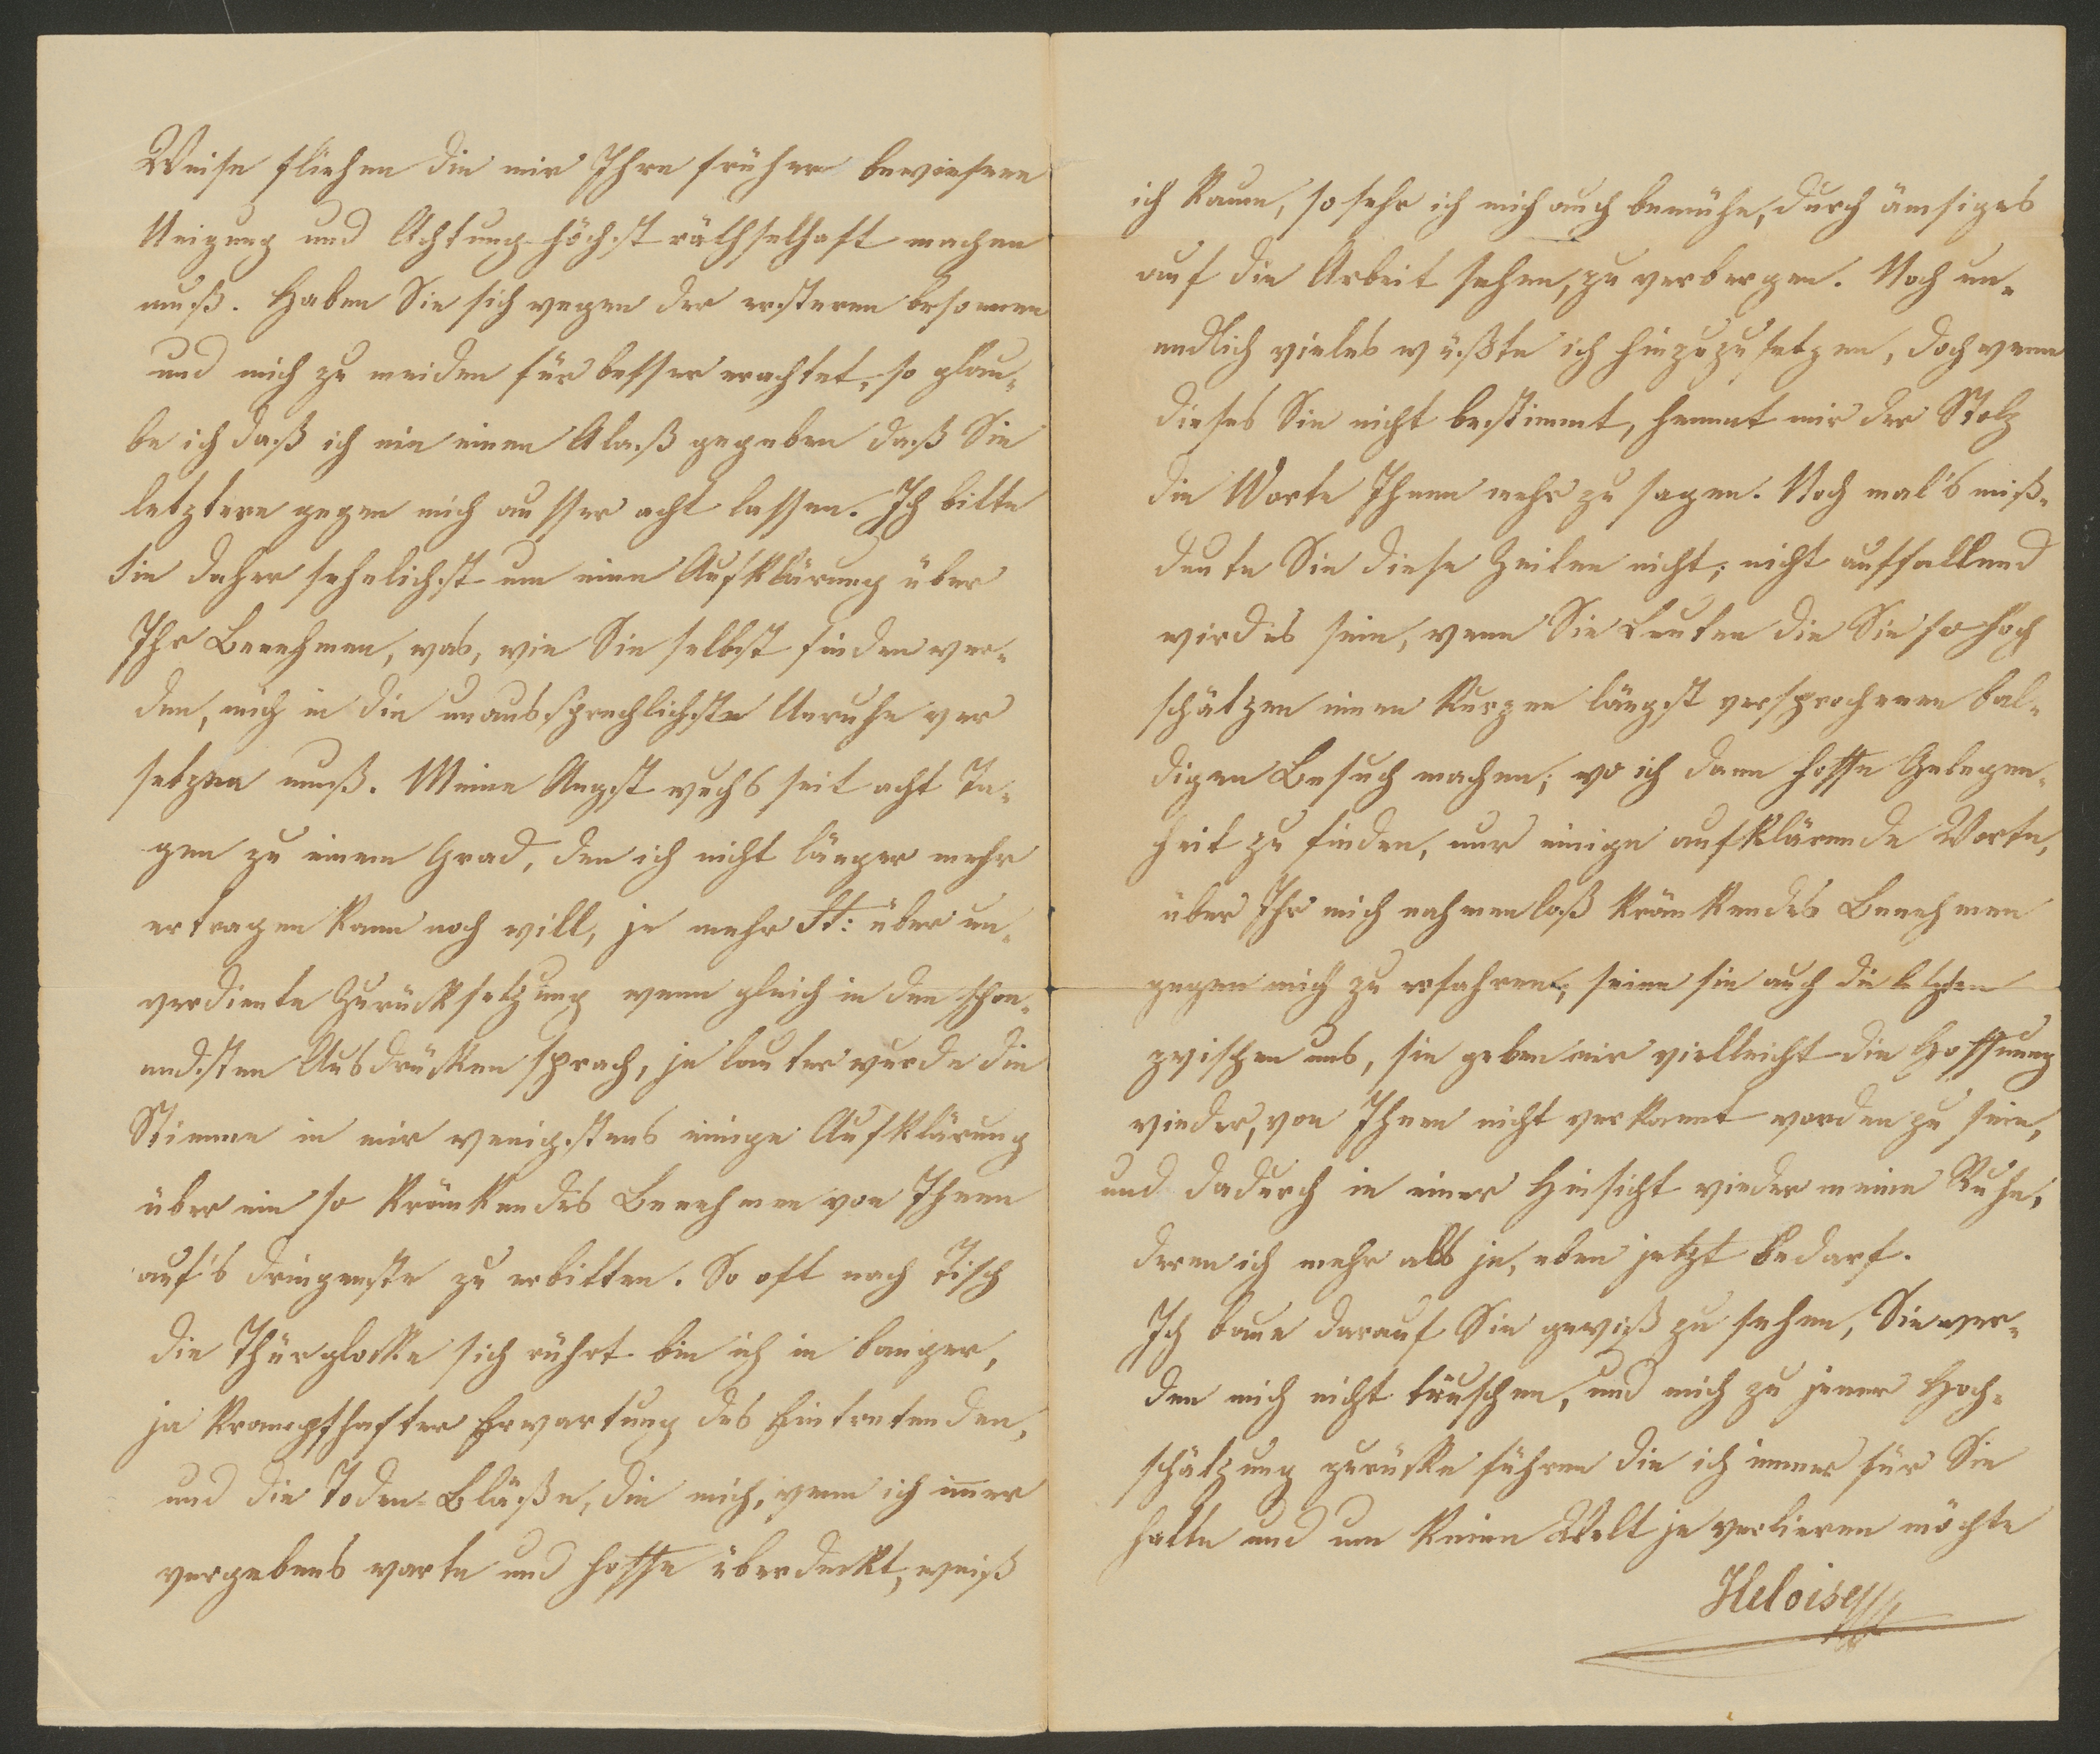 Weise fliehen die mir Ihre früher bewiesene
Neigung und Achtung höchst räthselhaft machen
muß. Haben Sie sich wegen der ersteren besonnen
und mich zu meiden für besser erachtet, so glau-
be ich daß ich nie einen Alaß gegeben daß Sie
letztere gegen mich ausser acht lassen. Ich bitte
Sie daher sehnlichst um eine Aufklärung über
Ihr Benehmen, was, wie Sie selbst finden wer-
den, mich in die unaussprechlichste Unruhe ver
setzen muß. Meine Angst wuchs seit acht Ta-
gen zu einem Grad, den ich nicht länger mehr
ertragen kann noch will, je mehr St: über un-
verdiente Zurücksetzung wenn gleich in den schon-
endsten Ausdrücken sprach, je lauter wurde die
Stimme in mir wenigstens einige Aufklärung
über ein so kränkendes Benehmen von Ihnen
auf's dringenste zu erbitten. So oft nach Tisch
die Thürglocke sich rührt bin ich in banger,
ja krampfhafter Erwartung des Eintretenden,
und die Toden-Bläße, die mich, wenn ich im̅er
vergebens warte und hoffe überdeckt, weiß
ich kaum, so sehr ich mich auch bemühe, durch ämsiges
auf die Arbeit sehen, zu verbergen. Noch un-
endlich vieles wüßte ich hinzuzusetzen, doch wenn
dieses Sie nicht bestimmt, hemmt mir der Stolz
die Worte Ihnen mehr zu sagen. Noch mal's miß-
deute Sie diese Zeilen nicht; nicht auffallend
wird es sein, wenn Sie Leuten die Sie so hoch
schätzen einen kurzen längst versprochenen bal-
digen Besuch machen; wo ich dann hoffe Gelegen-
heit zu finden, nur einige aufklärende Worte,
über Ihr mich nahmenloß kränkendes Benehmen
gegen mich zu erfahren; seien sie auch die letzten
zwischen uns, sie geben mir vielleicht die Hoffnung
wieder, von Ihnen nicht verkannt worden zu sein,
und dadurch in einer Hinsicht wieder meine Ruhe,
deren ich mehr als je, eben jetzt bedarf.
Ich baue darauf Sie gewiß zu sehen, Sie wer-
den mich nicht täuschen, und mich zu jener Hoch-
schätzung zurücke führen die ich immer für Sie
hatte und um keine Welt je verlieren möchte
Heloise